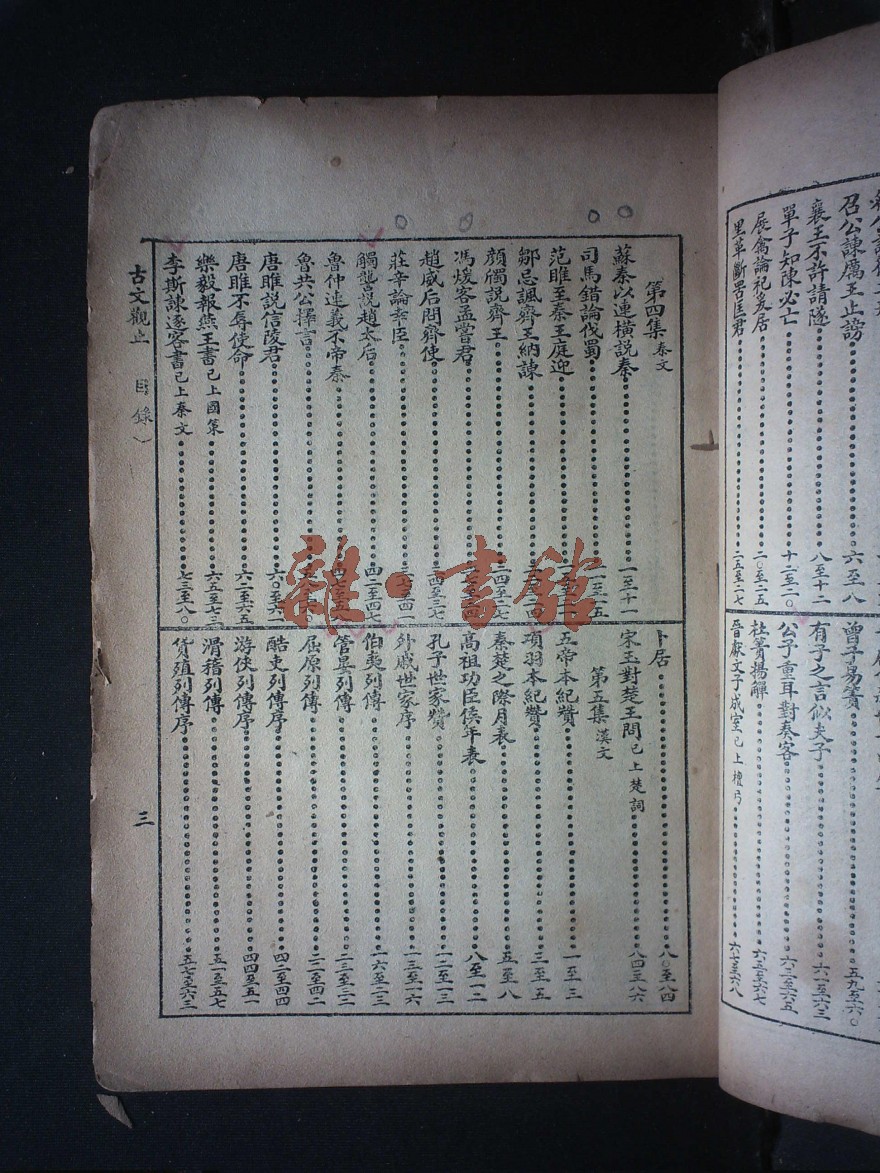 召公諫厲王止謗 六至八
襄王不許請隧 八至十二
單子知陳必亡 十二至二〇
展禽論祀爰居 二〇至二五
里革斷罟匡君 二五至二七
曾子易簀 五九至六〇
有子之言似夫子 六一至六三
公子重耳對秦客 六三至六五
杜簣揚觶 六五至六七
晉獻文子成室 已上檀弓 六七至六八
第四集 秦文
蘇秦以連橫說秦 一至十一
司馬錯論伐蜀
范雎至秦王庭迎
鄒忌諷齊王納諫
顏斶說齊王
馮煖客孟嘗君
趙威后問齊使
莊辛論幸臣
觸讋說趙太后 四二至四七
魯仲連義不帝秦
魯共公擇言
唐雎說信陵君 六〇至六一
唐雎不辱使命 六二至六五
樂毅報燕王書 已上國策 六五至七三
李斯諫逐客書 已上秦文 七三至八〇
卜居 八〇至八四
宋玉對楚王問 已上楚詞 八四至八六
第五集 漢文
五帝本紀贊 一至三
項羽本紀贊 三至五
秦楚之際月表 五至八
高祖功臣侯年表 八至一二
孔子世家贊 一二至一三
外戚世家序 一三至一六
伯夷列傳 一六至二三
管晏列傳 二三至三二
屈原列傳 三二至四二
酷吏列傳序 四二至四四
游俠列傳序 四四至五一
滑稽列傳 五一至五七
貨殖列傳序 五七至六三
古文觀止 目錄
三
雜·書館